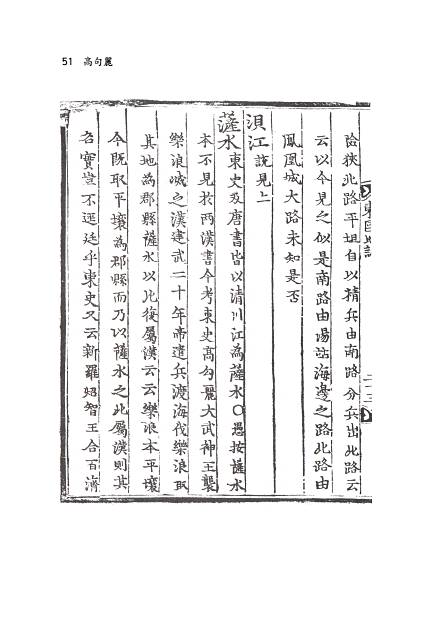 51 高句麗
險狹北路平坦自以精兵由南路分兵出北路云
云以今見之似是南路由湯站海邊之路北路由
鳳凰城大路未知是否
浿江說見上
薩水東史及唐書皆以清川江為薩水○愚按薩水
本不見於兩漢書今考東史高句麗大武神王襲
樂浪滅之漢建武二十年帝遣兵渡海伐樂浪取
其地為郡縣薩水以北復屬漢云云樂浪本平壤
今既取平壤為郡縣而乃以薩水之北屬漢則其
名實豈不逕廷乎東史又云新羅炤智王合百濟
東國地誌